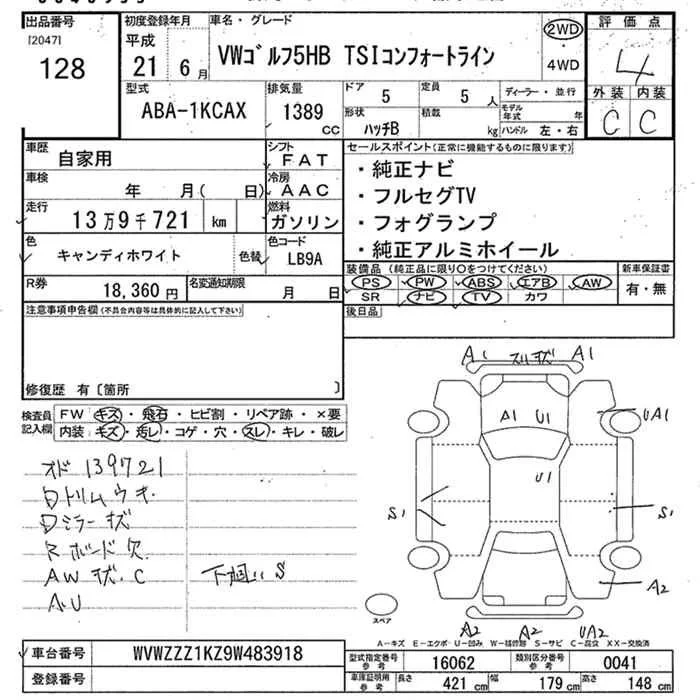 出品番号
[2047]
128
初度登録年月
平成
21 6月
車名・グレード
VWゴルフ5HB TSIコンフォートライン
2WD
・
4WD
評価点
4
外装 内装
C C
型式
ABA-1KCAX
排気量
1389
CC
ドア
5
定員
5人
形状
ハッチB
積載
kg
ディーラー・並行
モデル年式 年
ハンドル 左・右
車歴
自家用
シフト
FAT
車検
年 月( 日)
冷房
AAC
走行
13万9千721 km
燃料
ガソリン
色
キャンディホワイト
色替
色コード
LB9A
R券
18,360円
名変通知期限
月 日
セールスポイント(正常に機能するものに限ります)
・純正ナビ
・フルセグTV
・フォグランプ
・純正アルミホイール
装備品(純正品に限り○をつけてください)
PS PW ABS エアB AW
SR ナビ TV カワ
新車保証書
有・無
後日品
注意事項申告欄(不具合内容等は具体的に記入して下さい)
修復歴 有〔箇所 〕
検査員記入欄
FW キズ・飛石・ヒビ割・リペア跡・×要
内装 キズ・汚レ・コゲ・穴・スレ・キレ・破レ
オド 139721
Dトリムウキ
Dミラーキズ
Rボード欠
AWキズ.C
A.U
下廻りS
A1 スリキズ A1
A1 U1
UA1
U1
S1
S1
A2
A2 A2 UA2
スペア
A-キズ E-エクボ U-凹み W-補修跡 S-サビ C-腐食 XX-交換済
車台番号
WVWZZZ1KZ9W483918
登録番号
型式指定番号
参考
16062
類別区分番号
参考
0041
車庫証明用
参考
長さ 421cm 幅 179cm 高さ 148cm